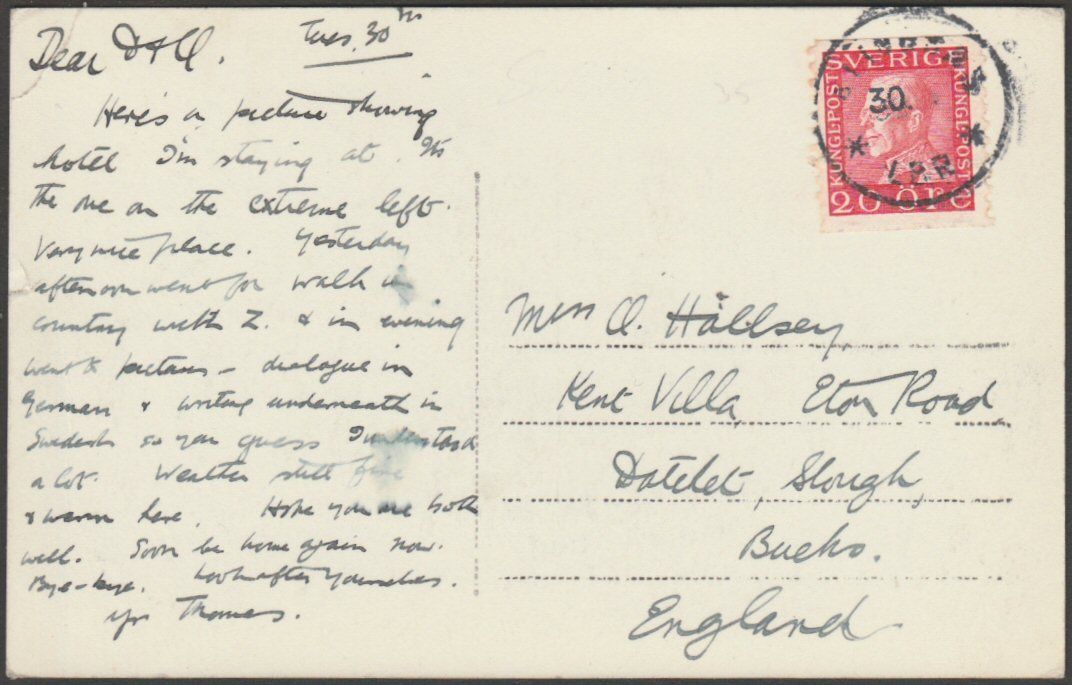 Dear D & O. Tues. 30th
Here's a picture showing
hotel I'm staying at. It's
the one on the extreme left.
Very nice place. Yesterday
afternoon went for walk in
country with Z. & in evening
went to pictures – dialogue in
German & writing underneath in
Swedish so you guess I understood
a lot. Weather still fine
& warm here. Hope you are both
well. Soon be home again now.
Bye-bye. Look after yourselves.
yrs Thomas.
SVERIGE
KUNGL·POST
KUNGL·POST
20 ÖRE
30.
O. Hallsey,
Kent Villa, Eton Road,
Datchet, Slough,
Bucks.
England.